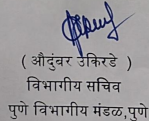 ( औदुंबर उकिरडे )
विभागीय सचिव
पुणे विभागीय मंडळ,पुणे